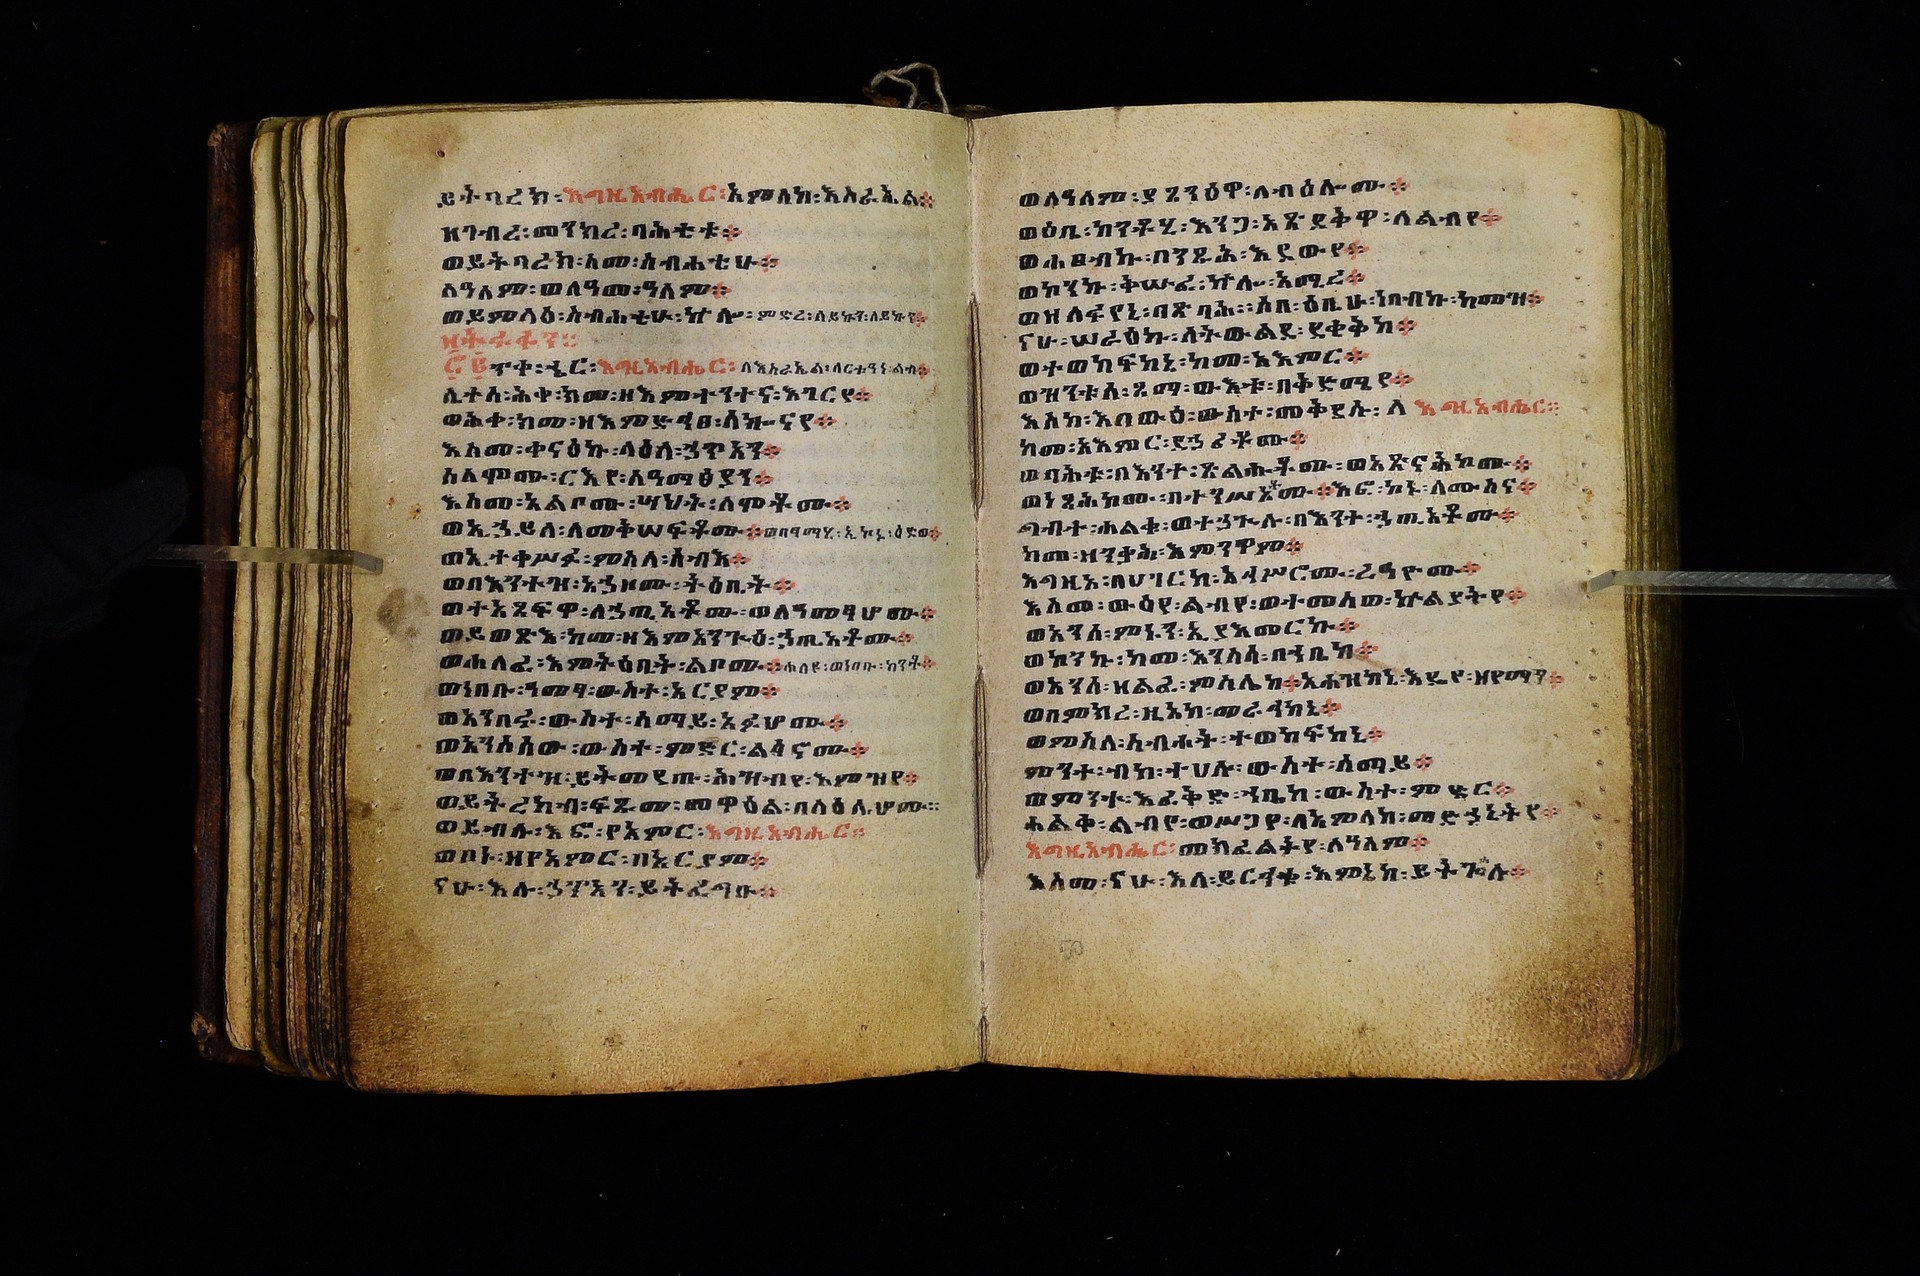 ይትባረክ፡እግዚአብሔር፡አምላከ፡እስራኤል።
ዘገብረ፡መንክረ፡ባሕቲቱ።
ወይትባረክ፡ስመ፡ስብሐቲሁ።
ለዓለም፡ወለዓመ፡ዓለም።
ወይምላዕ፡ስብሐቲሁ፡ኵሎ፡ምድረ፡ለይኩን፡ለይኩን።
ዘትፌፋን።
፸፪ጥቀ፡ኄር፡እግዚአብሔር፡ለእስራኤል፡ለርቱዓነ፡ልብ።
ሊተሰ፡ሕቀ፡ከመ፡ዘእምተንተና፡እገርየ።
ወሕቀ፡ከመ፡ዘእምድኅፀ፡ሰኰናየ።
እስመ፡ቀናዕኩ፡ላዕለ፡ኃጥአን።
ሰላሞሙ፡ርእየ፡ለዓማፅያን።
እስመ፡አልቦሙ፡ሣህተ፡ለሞቶሙ።
ወኢኃይለ፡ለመቅሠፍቶሙ።
ወኢተቀሥፉ፡ምስለ፡ሰብእ።
ወበእንተዝ፡አኃዘሙ፡ትዕቢት።
ወተአጸፍዋ፡ለኃጢአቶሙ፡ወለዓመፃሆሙ።
ወይወጽእ፡ከመ፡ዘእምአንጉዕ፡ኃጢአቶሙ።
ወሐለፈ፡እምትዕቢት፡ልቦሙ።ሐለዩ፡ወነበቡ፡ከንቶ።
ወነበቡ፡ዓመፃ፡ውስተ፡አርያም።
ወአንበሩ፡ውስተ፡ሰማይ፡አፉሆሙ።
ወአንሶሰወ፡ውስተ፡ምድር፡ልሳኖሙ።
ወበእንተዝ፡ይትመየጡ፡ሕዝብየ፡እምዝየ።
ወይትረከብ፡ፍጹመ፡መዋዕል፡በላዕሌሆሙ።
ወይብሉ፡እፎ፡የአምር፡እግዚአብሔር።
ወቦኑ፡ዘየአምር፡በአርያም።
ናሁ፡እሉ፡ኃጥአን፡ይትፌግዑ።
ወለዓለም፡ያጸንዕዋ፡ለብዕሎሙ።
ወዕቤ፡ከንቶሂ፡እንጋ፡አጽደቅዋ፡ለልብየ።
ወሐፀብኩ፡በንጹሕ፡እደውየ።
ወኮንኩ፡ቅሡፈ፡ኵሎ፡አሚረ።
ወዘለፍየኒ፡በጽባሕ።ሶበ፡ዕቤሁ፡ነበብኩ፡ከመዝ።
ናሁ፡ሠራዕኩ፡ለትውልደ፡ደቂቅከ።
ወተወከፍከኒ፡ከመ፡አእምር።
ወዝንቱሰ፡ጻማ፡ውእቱ፡በቅድሜየ።
እስከ፡እበውዕ፡ውስተ፡መቅደሱ፡ለእግዚአብሔር።
ከመ፡አእምር፡ደኃሪቶሙ።
ወባሕቱ፡በእንተ፡ጽልሑቶሙ፡ወአጽናሕኮሙ።
ወነጻሕከሙ፡በተንሥኦሙ።እፎ፡ኮኑ፡ለሙስና።
ግብተ፡ሐልቁ፡ወተኃጕሉ፡በእንተ፡ኃጢአቶሙ።
ከመ፡ዘንቃሕ፡እምንዋም።
እግዚኦ፡በሀገርከ፡አኅሥሮሙ፡ረዓዮሙ።
እስመ፡ውዕየ፡ልብየ፡ወተመስወ፡ኵልያትየ።
ወአንሰ፡ምኑን፡ኢያእመርኩ።
ወኮንኩ፡ከመ፡እንስሳ፡በኀቤከ።
ወአንሰ፡ዘልፈ፡ምስሌከ።አሐዝከኒ፡እዴየ፡ዘየማን።
ወበምክረ፡ዚአከ፡መራኅከኒ።
ወምስለ፡ስብሐት፡ተወከፍከኒ።
ምንተ፡ብከ፡ተሀሉ፡ውስተ፡ሰማይ።
ወምንተ፡እፈቅድ፡ኀቤከ፡ውስተ፡ምድር።
ሐልቀ፡ልብየ፡ወሥጋየ፡ለአምላከ፡መድኃኒትየ።
እግዚአብሔር፡መክፈልትየ፡ለዓለም።
እስመ፡ናሁ፡እለ፡ይርኅቁ፡እምኔከ፡ይትኃጐሉ።
50